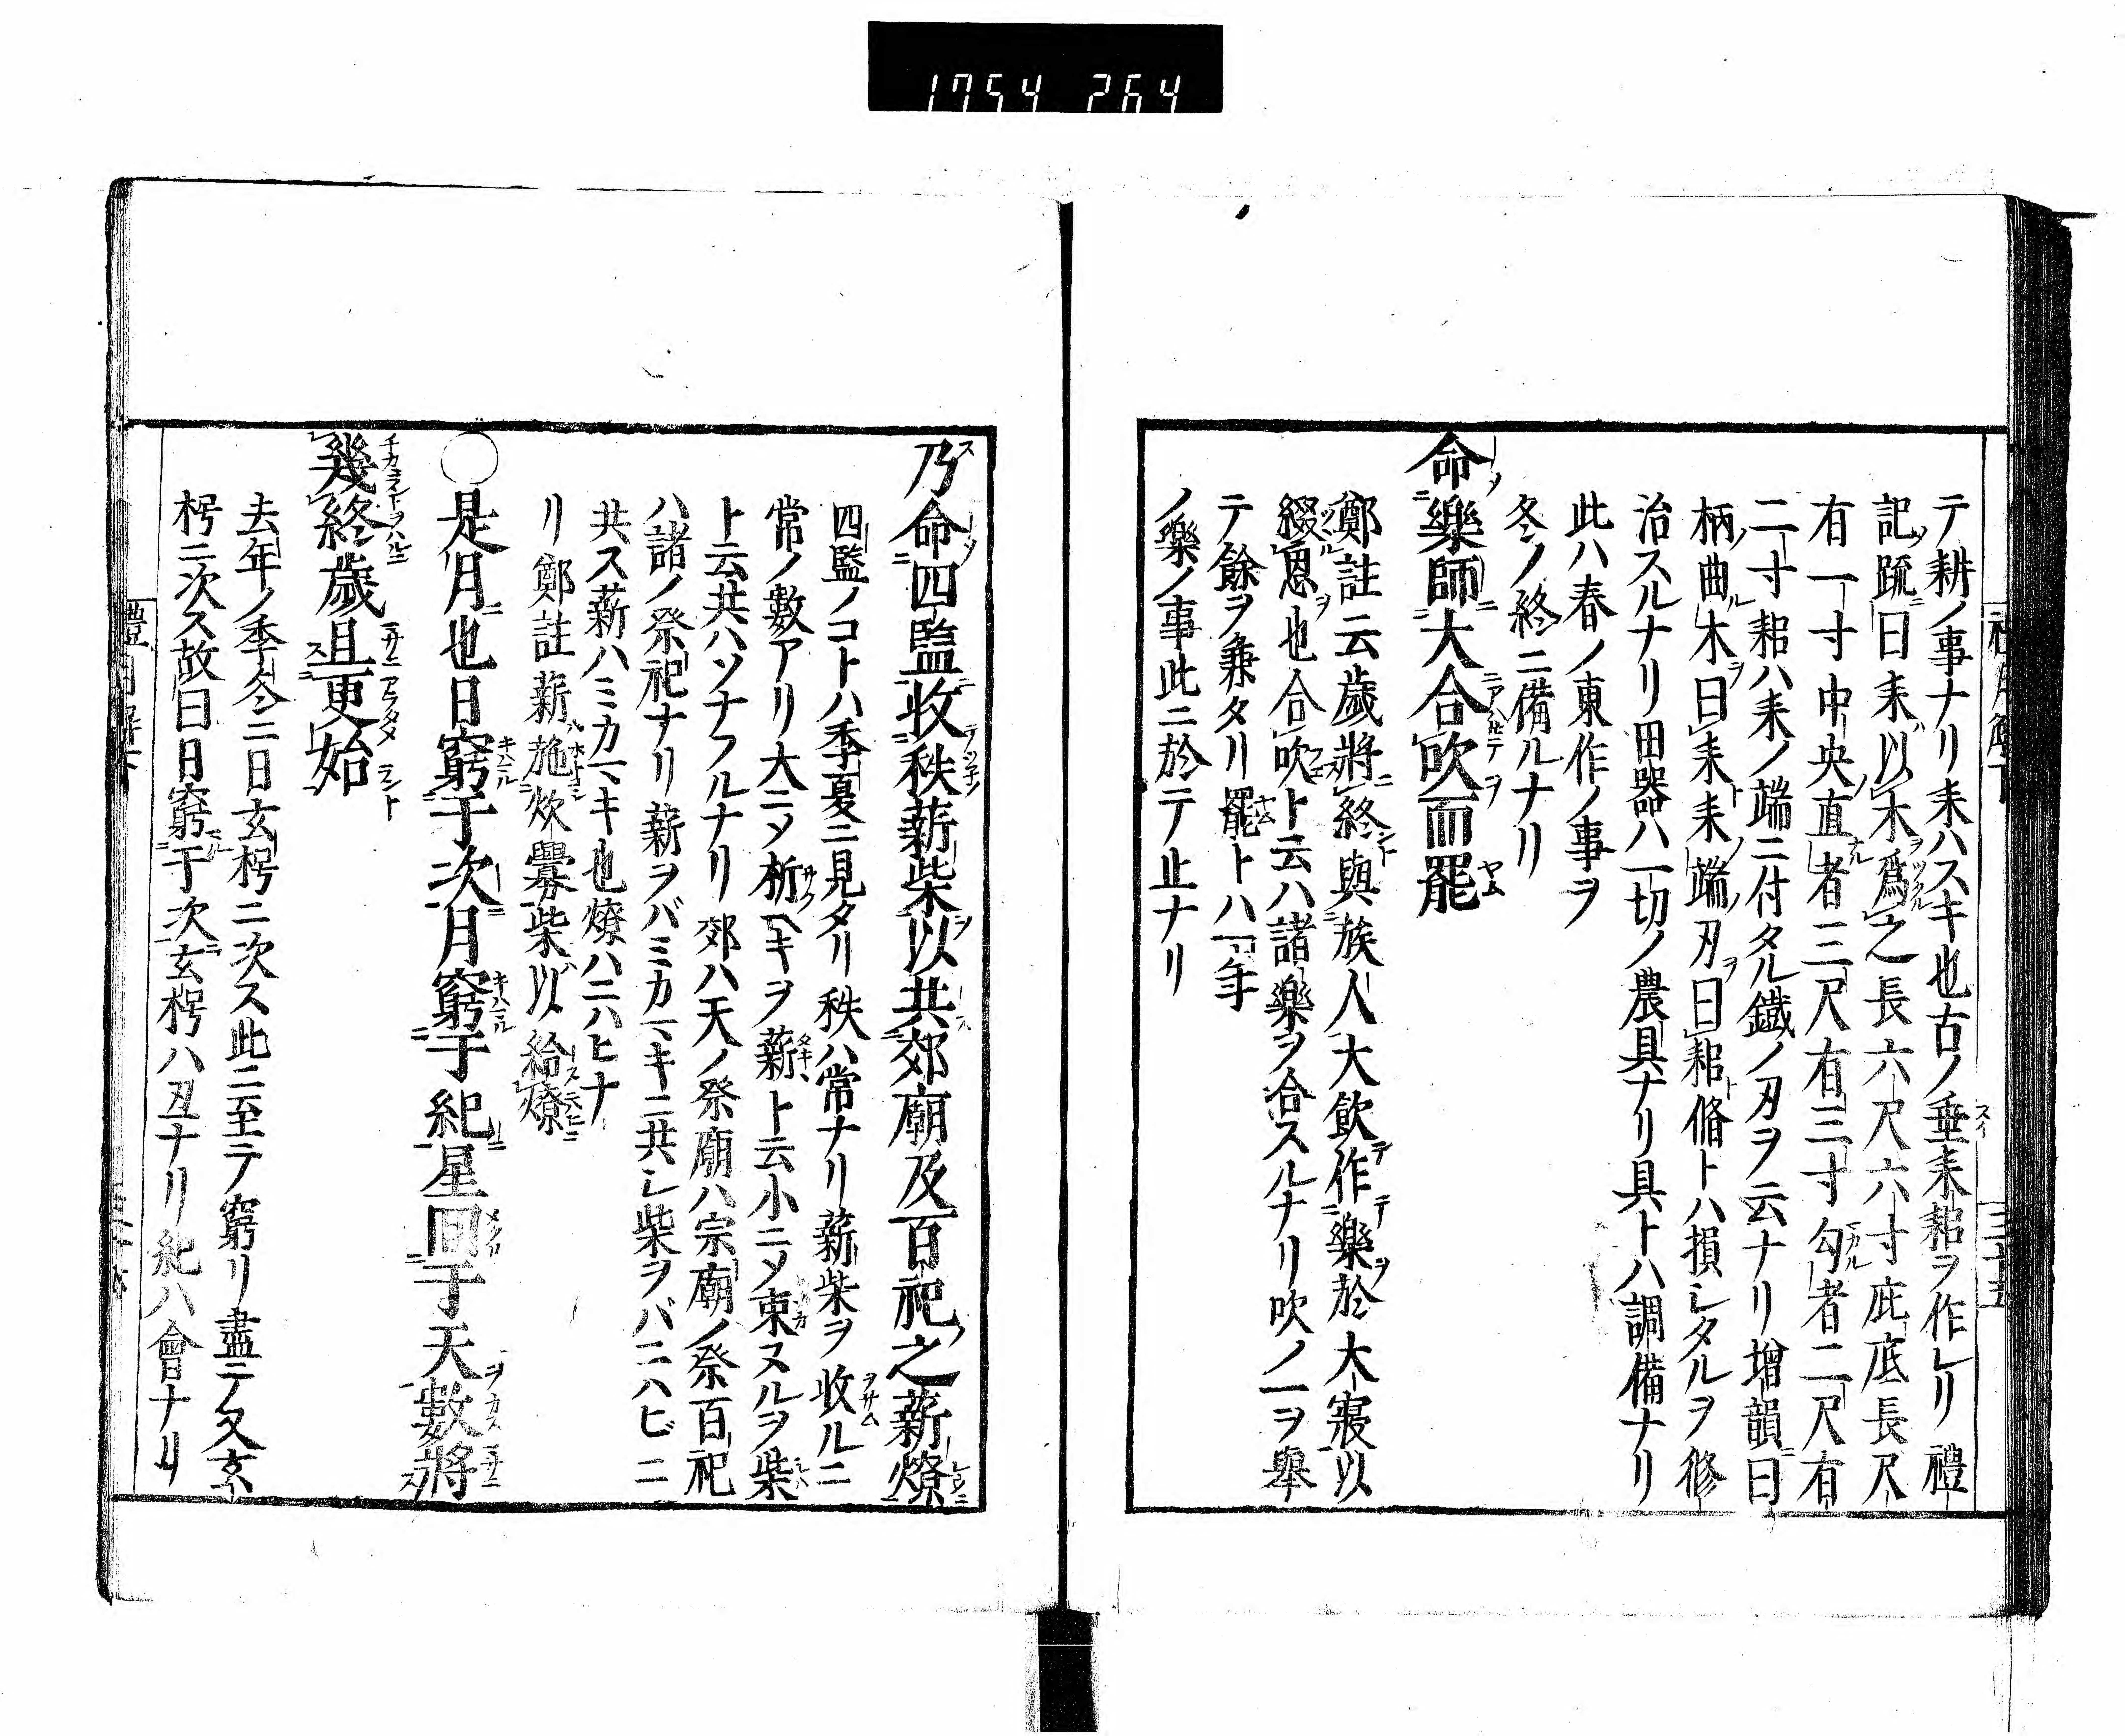 1754 264
テ耕ノ事ナリ耒ハスキ也古ノ垂耒耜ヲ作レリ禮
記疏曰耒以木爲之長六尺六寸庇底長尺
有一寸中央直者三尺有三寸勾者二尺有
二寸耜ハ耒ノ端ニ付タル鐵ノ刃ヲ云ナリ増韻曰
柄曲木曰耒耒端刃曰耜脩トハ損シタルヲ修
治スルナリ田器ハ一切ノ農具ナリ具トハ調備ナリ
此ハ春ノ東作ノ事ヲ
冬ノ終ニ備ルナリ
命樂師大合吹而罷
鄭註云歳將終與族人大飲作樂於大寢以
綴恩也合吹ト云ハ諸樂ヲ合スルナリ吹ノ一ヲ舉
テ餘ヲ兼タリ罷トハ一年
ノ樂ノ事此ニ於テ止ナリ
乃命四監收秩薪柴以共郊廟及百祀之薪燎
四監ノコトハ季夏ニ見タリ秩ハ常ナリ薪柴ヲ收ルニ
常ノ數アリ大ニメ析ヘキヲ薪ト云小ニメ束ヌルヲ柴
ト云共ハソナフルナリ郊ハ天ノ祭廟ハ宗廟ノ祭百祀
ハ諸ノ祭祀ナリ薪ヲバミカマキニ共シ柴ヲバニハビニ
共ス薪ハミカマキ也燎ハニハヒナ
リ鄭註薪施炊爨柴以給燎
○是月也日窮于次月窮于紀星回于天數將
幾終歳且更始
去年ノ季冬ニ日玄枵ニ次ス此ニ至テ窮リ盡テ又玄
枵ニ次ス故曰日窮于次玄枵ハ丑ナリ紀ハ會ナリ